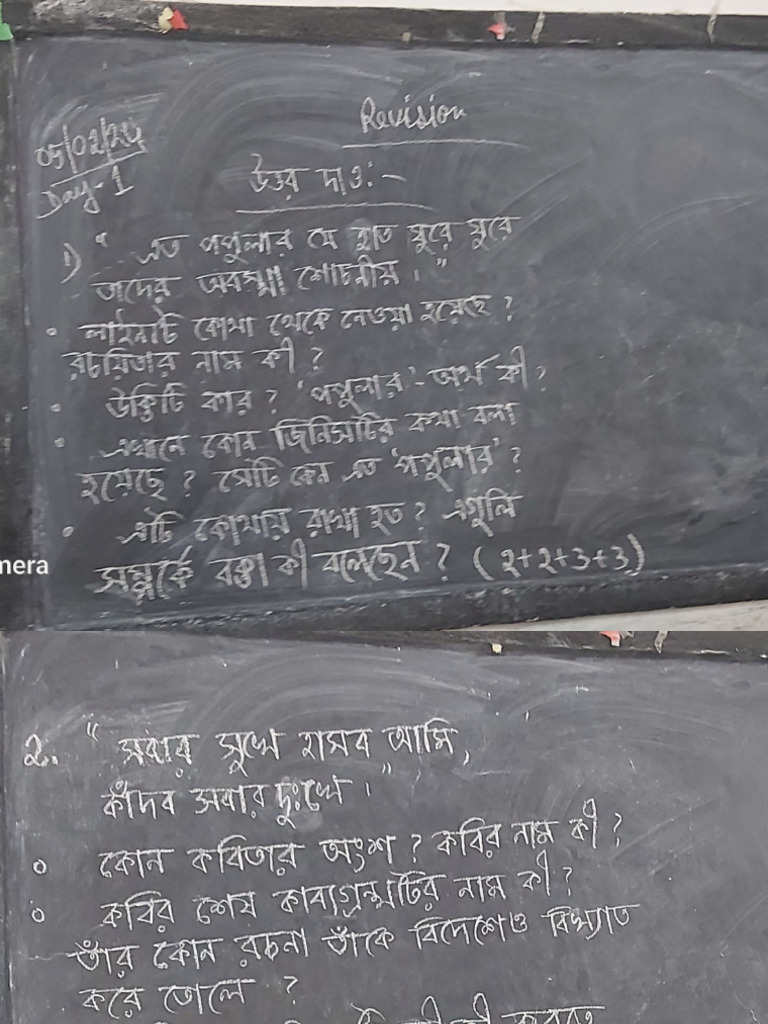 Revision
05/02/24
Day-1
উত্তর দাও:-
১) " এত পপুলার যে হাত ঘুরে ঘুরে
তাদের অবস্থা শোচনীয়। "
• লাইনটি কোথা থেকে নেওয়া হয়েছে ?
রচয়িতার নাম কী ?
• উক্তিটি কার ? 'পপুলার'-অর্থ কী ?
• এখানে কোন জিনিসটির কথা বলা
হয়েছে ? সেটি কেন এত 'পপুলার' ?
• এটি কোথায় রাখা হত ? এগুলি
সম্পর্কে বক্তা কী বলেছেন ? (২+২+৩+৩)
mera
2. " সবার সুখে হাসব আমি,
কাঁদব সবার দুঃখে। "
০ কোন কবিতার অংশ ? কবির নাম কী ?
০ কবির শেষ কাব্যগ্রন্থটির নাম কী ?
তাঁর কোন রচনা তাঁকে বিদেশেও বিখ্যাত
করে তোলে ?